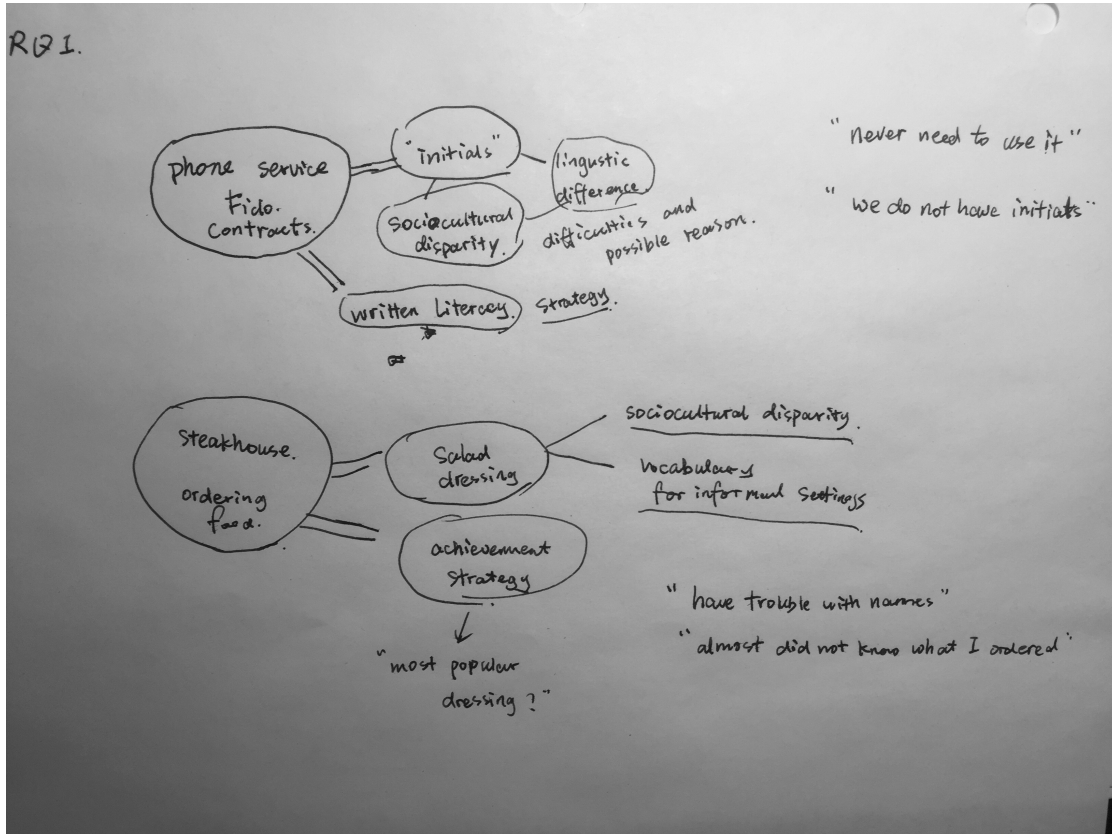 RQ1.
phone service
Fido.
Contracts.
"initials"
lingustic
difference.
sociocultural
disparity.
difficulties and
possible reason.
written Literacy.
Strategy.
"never need to use it"
"we do not have initials"
Steakhouse.
ordering
food.
Salad
dressing
sociocultural disparity.
vocabulary
for informal settings
achievement
strategy
"most popular
dressing?"
"have trouble with names"
"almost did not know what I ordered"